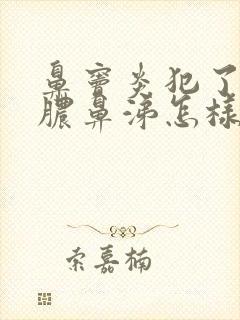 鼻窦炎犯了
脓鼻涕怎样
索嘉楠